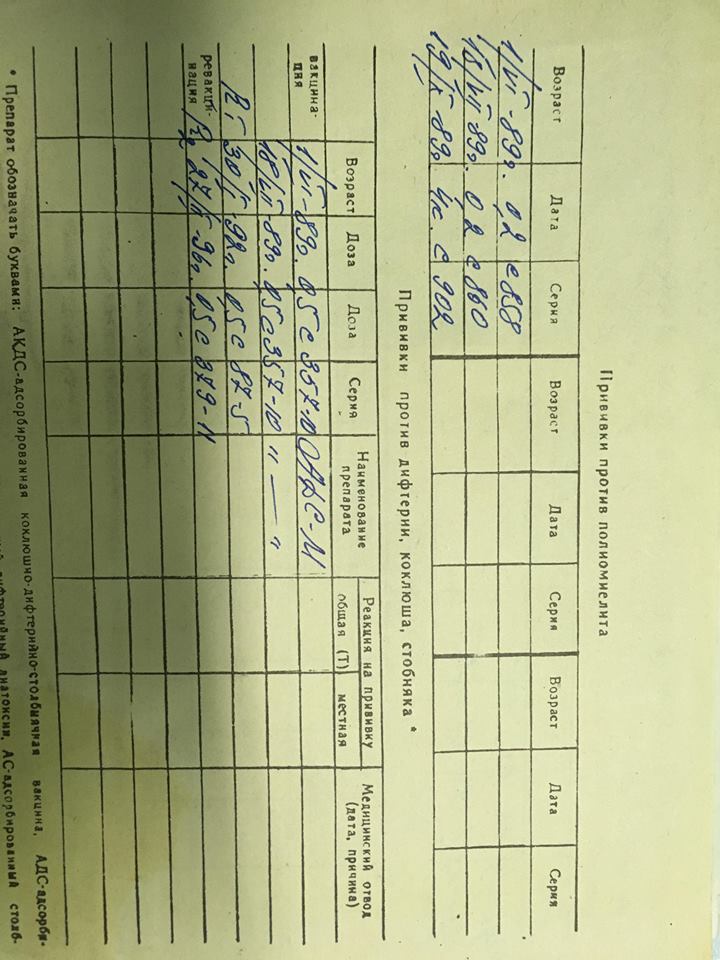 Прививки против полиомиелита
Возраст Дата Серия Возраст Дата Серия Возраст Дата Серия
1/VI-89г. 0,2 с 858
18/VII-89г. 0 2 с 860
19/X-89г. 4к. с 902
Прививки против дифтерии, коклюша, стобняка *
Возраст Доза Доза Серия Наименование препарата Реакция на прививку Медицинский отвод (дата, причина)
общая (Т) местная
вакцина-
ция
1/VI-89г. 05 с 357-10 АДС-М
18/VII-89г. 05 с 357-10 " — "
30/ -92г. 0,5 с 87-5
ревакци-
нация
27/ -96г. 0,5 с 379-11
* Препарат обозначать буквами: АКДС-адсорбированная коклюшно-дифтерийно-столбнячная вакцина, АДС-адсорби-
дифтерийный анатоксин, АС-адсорбированный столб-